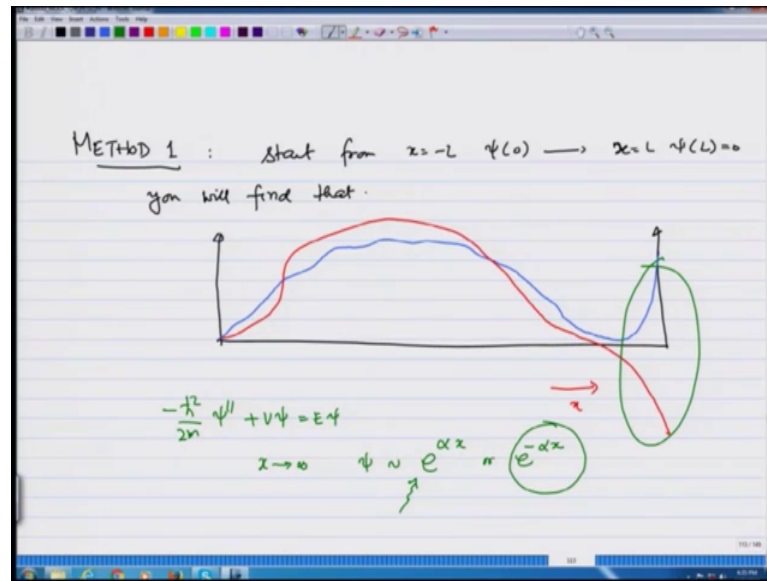 File Edit View Insert Actions Tools Help
METHOD 1 : start from x=-L ψ(0) ⟶ x=L ψ(L)=0
you will find that.
x
-ħ²/2m ψ'' + Vψ = Eψ
x→∞ ψ ~ e^{αx} or e^{-αx}